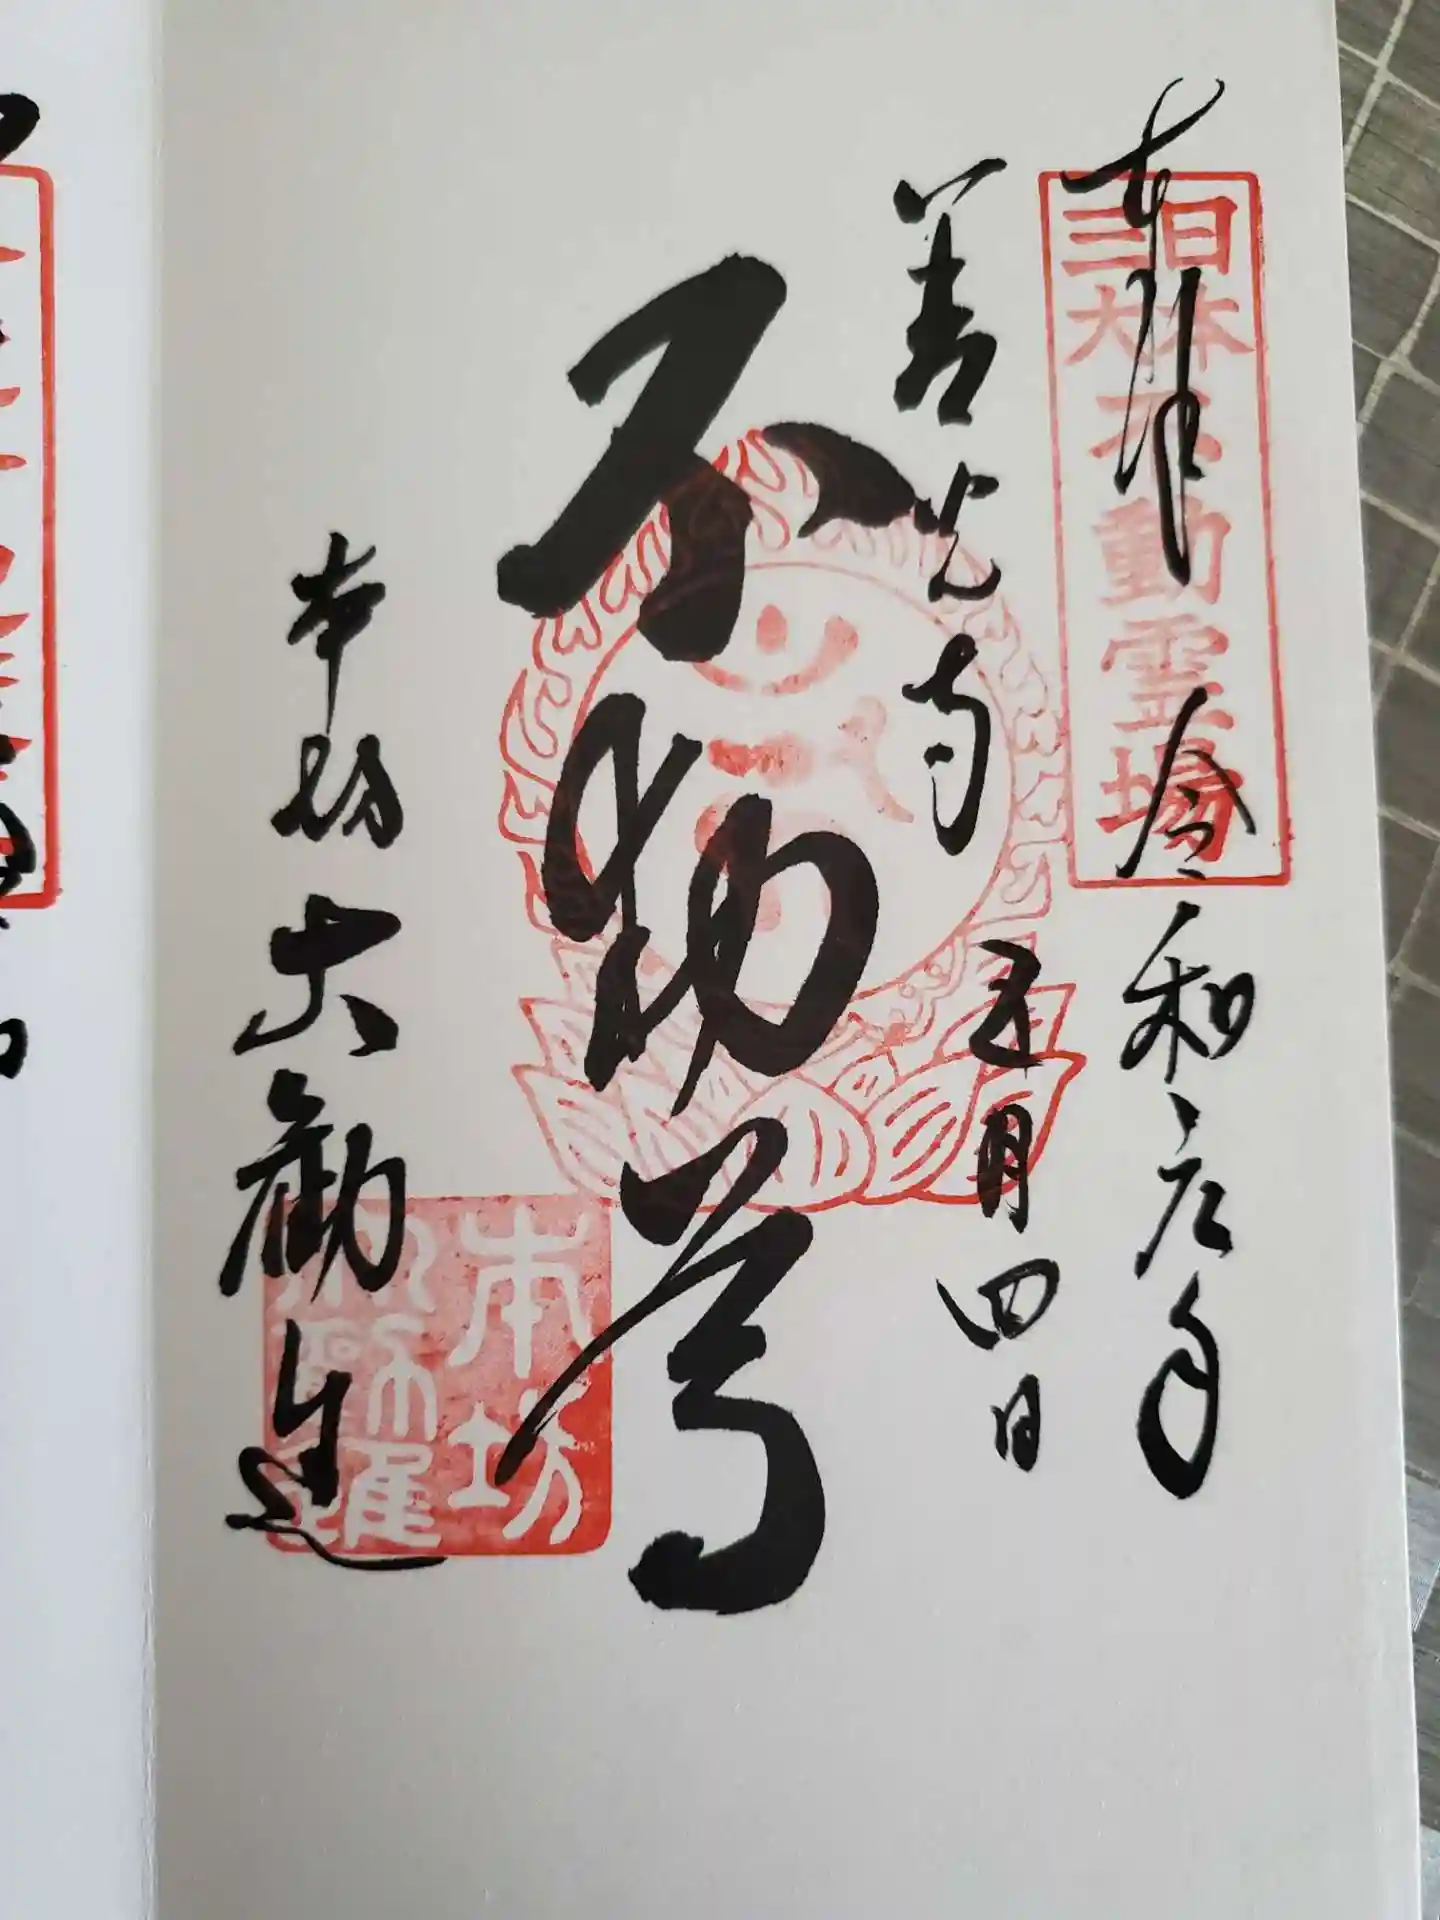 奉拝
令和元年
日本
三大
不動霊場
善光寺
五月四日
不動尊
本坊
大勧進
本坊